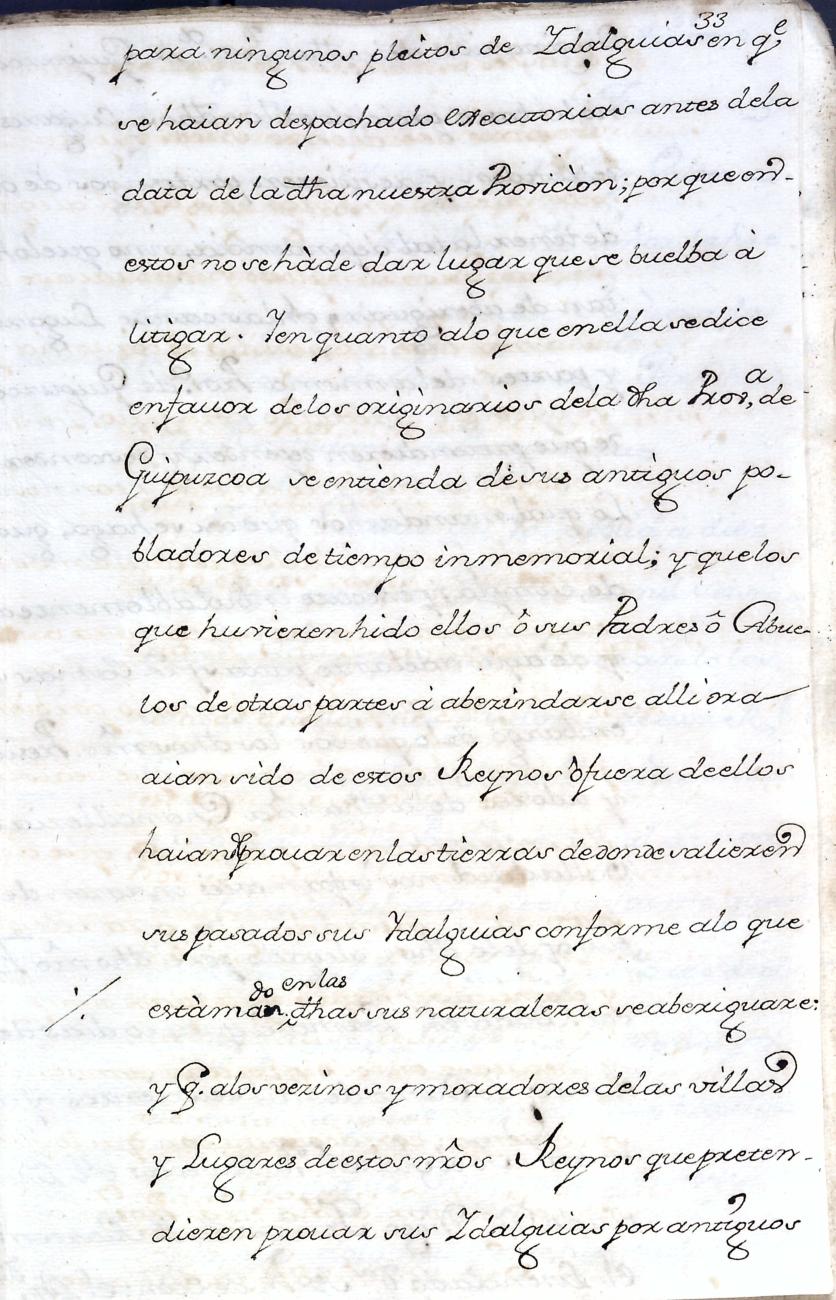 33
para ningunos pleitos de Ydalguias en qe
se haian despachado executorias antes dela
data de la dha nuestra Provicion; por que en
estos no se hà de dar lugar que se buelba à
litigar. Y en quanto alo que en ella se dice
en fauor delos originarios dela dha Prova, de
Guipuzcoa se entienda de sus antiguos po-
bladores de tiempo inmemorial; y que los
que huvieren hido ellos ô sus Padres ô Abue-
los de otras partes à abezindarse alli ora
aian sido de estos Reynos ò fuera de ellos
haian de prouar en las tierras de donde salieren
sus pasados sus Ydalguias conforme alo que
do en las
està man. dhas sus naturalezas se aberiguare:
y q. alos vezinos y moradores delas villas
y Lugares de estos nros Reynos que preten-
dieren prouar sus Ydalguias por antiguos